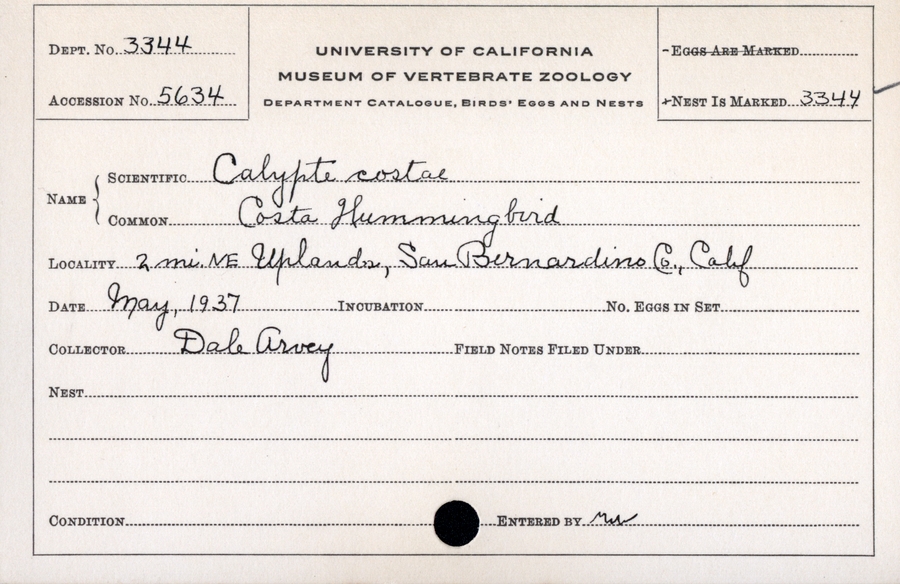 DEPT. NO. 3344
ACCESSION NO. 5634
UNIVERSITY OF CALIFORNIA
MUSEUM OF VERTEBRATE ZOOLOGY
DEPARTMENT CATALOGUE, BIRDS' EGGS AND NESTS
-EGGS ARE MARKED
+NEST IS MARKED 3344
NAME
SCIENTIFIC Calypte costae
COMMON Costa Hummingbird
LOCALITY 2 mi. NE Uplands, San Bernardino Co., Calif
DATE May, 1937 INCUBATION NO. EGGS IN SET
COLLECTOR Dale Arvey FIELD NOTES FILED UNDER
NEST
CONDITION ENTERED BY